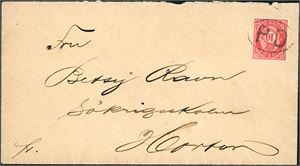 Fru
Betsy Ravn
Sökrigsskolen
Horten
fr.
10